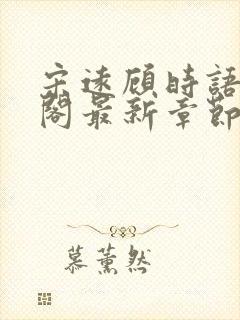 宋遠顧時語
閣最新章節
慕薰然